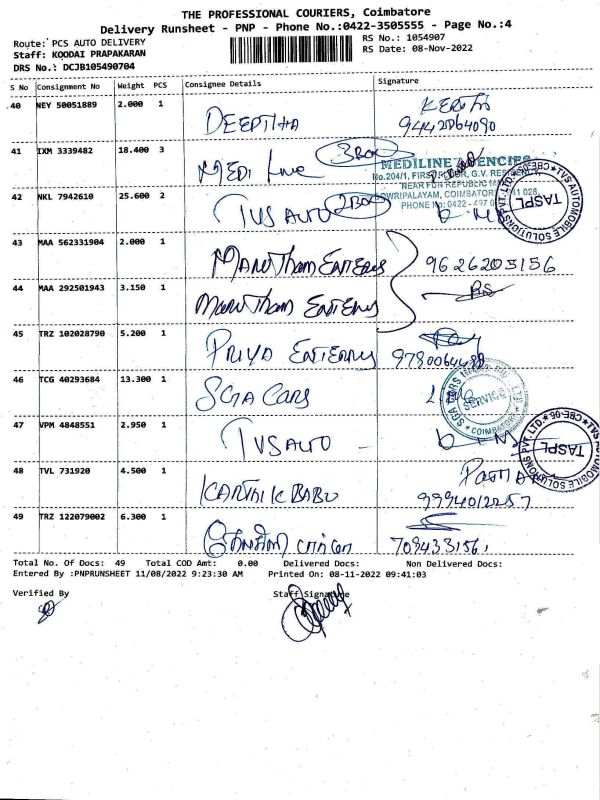 THE PROFESSIONAL COURIERS, Coimbatore
Delivery Runsheet - PNP - Phone No.:0422-3505555 - Page No.:4
Route: PCS AUTO DELIVERY
RS No.: 1054907
Staff: KOODAI PRAPAKARAN
RS Date: 08-Nov-2022
DRS No.: DCJB105490704
S No Consignment No Weight PCS Consignee Details Signature
40 NEY 50051889 2.000 1
DEEPTHA
9442764090
41 IXM 3339482 18.400 3
MEDI Line 3 Box
MEDILINE AGENCIES
No.204/1, FIRST FLOOR, G.V. RESIDENCY,
NEAR FUN REPUBLIC MALL
SOWRIPALAYAM, COIMBATORE 641 028.
PHONE No: 0422 - 497 0
42 NKL 7942610 25.600 2
TVS AUTO 2 Box
TVS AUTOMOBILE SOLUTIONS PVT. LTD. CBE-05
TASPL
43 MAA 562331904 2.000 1
Marutham Enterprys
9626205156
44 MAA 292501943 3.150 1
Marutham Enterprys
45 TRZ 102028790 5.200 1
PRIYA ENTERPRY
46 TCG 40293684 13.300 1
SGA Cars
SGA CARS
SERVICE
COIMBATORE
47 VPM 4848551 2.950 1
TVS AUTO
TVS AUTOMOBILE SOLUTIONS PVT. LTD. CBE-05
TASPL
48 TVL 731920 4.500 1
KARTHIK BABU
9994012257
49 TRZ 122079002 6.300 1
709433156
Total No. Of Docs: 49 Total COD Amt: 0.00 Delivered Docs: Non Delivered Docs:
Entered By :PNPRUNSHEET 11/08/2022 9:23:30 AM Printed On: 08-11-2022 09:41:03
Verified By
Staff Signature